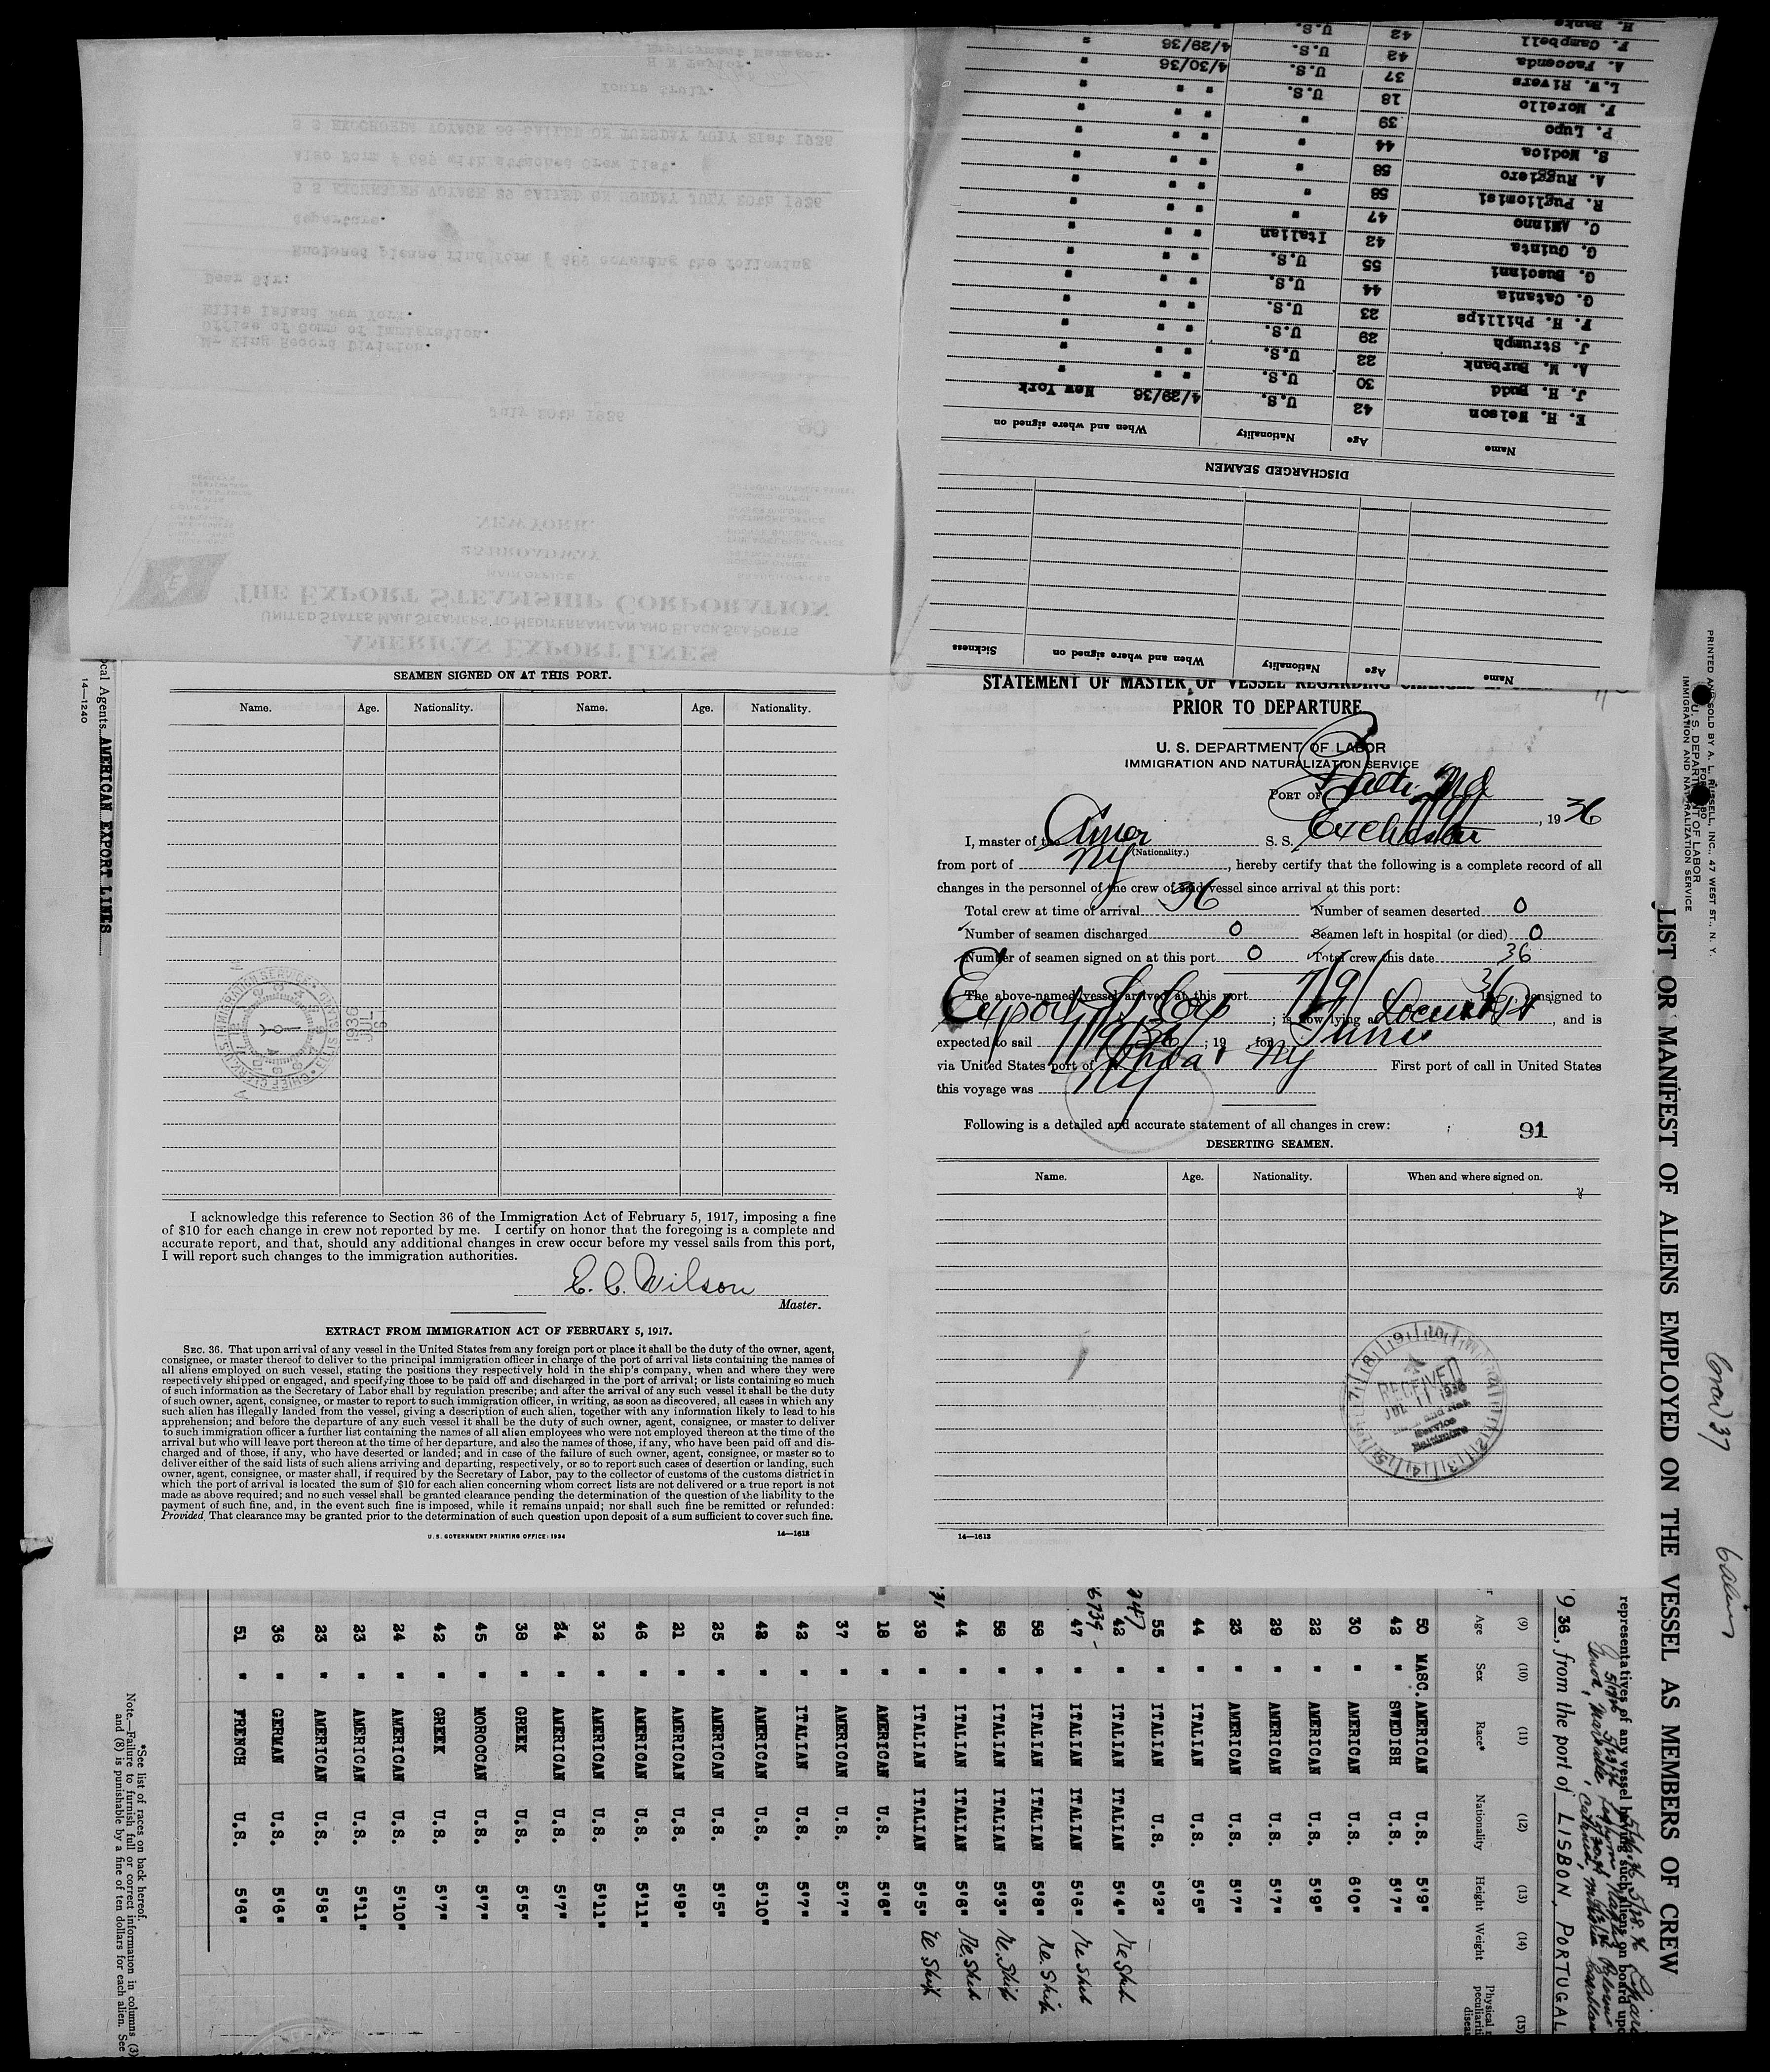 SEAMEN SIGNED ON AT THIS PORT.
Name. Age. Nationality. Name. Age. Nationality.
I acknowledge this reference to Section 36 of the Immigration Act of February 5, 1917, imposing a fine
of $10 for each change in crew not reported by me. I certify on honor that the foregoing is a complete and
accurate report, and that, should any additional changes in crew occur before my vessel sails from this port,
I will report such changes to the immigration authorities.
C. C. Wilson
Master.
EXTRACT FROM IMMIGRATION ACT OF FEBRUARY 5, 1917.
SEC. 36. That upon arrival of any vessel in the United States from any foreign port or place it shall be the duty of the owner, agent,
consignee, or master thereof to deliver to the principal immigration officer in charge of the port of arrival lists containing the names of
all aliens employed on such vessel, stating the positions they respectively hold in the ship's company, when and where they were
respectively shipped or engaged, and specifying those to be paid off and discharged in the port of arrival; or lists containing so much
of such information as the Secretary of Labor shall by regulation prescribe; and after the arrival of any such vessel it shall be the duty
of such owner, agent, consignee, or master to report to such immigration officer, in writing, as soon as discovered, all cases in which any
such alien has illegally landed from the vessel, giving a description of such alien, together with any information likely to lead to his
apprehension; and before the departure of any such vessel it shall be the duty of such owner, agent, consignee, or master to deliver
to such immigration officer a further list containing the names of all alien employees who were not employed thereon at the time of the
arrival but who will leave port thereon at the time of her departure, and also the names of those, if any, who have been paid off and dis-
charged and of those, if any, who have deserted or landed; and in case of the failure of such owner, agent, consignee, or master so to
deliver either of the said lists of such aliens arriving and departing, respectively, or so to report such cases of desertion or landing, such
owner, agent, consignee, or master shall, if required by the Secretary of Labor, pay to the collector of customs of the customs district in
which the port of arrival is located the sum of $10 for each alien concerning whom correct lists are not delivered or a true report is not
made as above required; and no such vessel shall be granted clearance pending the determination of the question of the liability to the
payment of such fine, and, in the event such fine is imposed, while it remains unpaid; nor shall such fine be remitted or refunded:
Provided, That clearance may be granted prior to the determination of such question upon deposit of a sum sufficient to cover such fine.
U. S. GOVERNMENT PRINTING OFFICE: 1934 14—1613
STATEMENT OF MASTER OF VESSEL REGARDING CHANGES
PRIOR TO DEPARTURE
U. S. DEPARTMENT OF LABOR
IMMIGRATION AND NATURALIZATION SERVICE
PORT OF Balti. Md
, 19 36
I, master of the Amer S. S. Exchester
(Nationality.)
from port of NY, hereby certify that the following is a complete record of all
changes in the personnel of the crew of said vessel since arrival at this port:
Total crew at time of arrival 36 Number of seamen deserted 0
Number of seamen discharged 0 Seamen left in hospital (or died) 0
Number of seamen signed on at this port 0 Total crew this date 36
The above-named vessel arrived at this port consigned to
Export SS Corp ; is now lying at Locust Pt, and is
expected to sail ; 19 , for Tunis
via United States port of Phila + NY First port of call in United States
this voyage was NY
Following is a detailed and accurate statement of all changes in crew:
91
DESERTING SEAMEN.
Name. Age. Nationality. When and where signed on.
RECEIVED
JUL 11 1936
Service
Baltimore
14—1613
Name Age Nationality When and where signed on Sickness
DISCHARGED SEAMEN
Name Age Nationality When and where signed on
E. H. Nelson 42 U.S. 4/29/36 New York
J. H. Budd 30 U.S. " " "
A. W. Burbank 22 U.S. " " "
J. Strumph 29 U.S. " " "
F. H. Phillips 23 U.S. " " "
G. Catania 44 U.S. " " "
G. Buscinni 55 U.S. " " "
G. Guinta 42 Italian " " "
C. Aminno 47 " " " "
R. Puglionisi 58 " " " "
A. Ruggiero 58 " " " "
S. Modica 44 " " " "
P. Lupo 39 " " " "
F. Morello 18 U.S. " " "
L.W. Rivers 37 U.S. 4/30/36 "
A. Facconda 42 U.S. 4/29/36 "
F. Campbell 42 U.S. " " "
H. Banks
AMERICAN EXPORT LINES
UNITED STATES MAIL STEAMERS TO MEDITERRANEAN AND BLACK SEA PORTS
THE EXPORT STEAMSHIP CORPORATION
MAIN OFFICE
25 BROADWAY
NEW YORK.
July 20th 1936
Mr King Record Division.
Office of Comm of Immigration.
Ellis Island New York.
Dear Sir:
Enclosed please find form # 689 covering the following
departure.
S S EXCHESTER VOYAGE 29 SAILED ON MONDAY JULY 20th 1936
Also Form # 689 with attached Crew List.
S S EXOCHORDA VOYAGE 55 SAILED ON TUESDAY JULY 21st 1936
Yours truly.
H N Taylor.
Employment Manager.
LIST OR MANIFEST OF ALIENS EMPLOYED ON THE VESSEL AS MEMBERS OF CREW
PRINTED AND SOLD BY A. L. RUSSELL, INC., 47 WEST ST., N. Y.
U. S. DEPARTMENT OF LABOR
IMMIGRATION AND NATURALIZATION SERVICE
Crew 37
representatives of any vessel having such aliens on board upo
19 36, from the port of LISBON, PORTUGAL
(9) (10) (11) (12) (13) (14) (15)
Age Sex Race* Nationality Height Weight Physical
50 MASC. AMERICAN U.S. 5'9"
42 " SWEDISH U.S. 5'7"
30 " AMERICAN U.S. 6'0"
22 " AMERICAN U.S. 5'9"
29 " AMERICAN U.S. 5'7"
23 " AMERICAN U.S. 5'7"
44 " ITALIAN U.S. 5'5"
55 " ITALIAN U.S. 5'2"
42 " ITALIAN ITALIAN 5'4" Re. Ship
47 " ITALIAN ITALIAN 5'6" Re. Ship
58 " ITALIAN ITALIAN 5'8" Re. Ship
58 " ITALIAN ITALIAN 5'3" Re. Ship
44 " ITALIAN ITALIAN 5'6" Re. Ship
39 " ITALIAN ITALIAN 5'5" Re Ship
18 " AMERICAN U.S. 5'6"
37 " AMERICAN U.S. 5'7"
42 " ITALIAN U.S. 5'7"
42 " AMERICAN U.S. 5'10"
25 " AMERICAN U.S. 5'5"
21 " AMERICAN U.S. 5'9"
46 " AMERICAN U.S. 5'11"
32 " AMERICAN U.S. 5'11"
24 " AMERICAN U.S. 5'7"
38 " GREEK U.S. 5'5"
45 " MOROCCAN U.S. 5'7"
42 " GREEK U.S. 5'7"
24 " AMERICAN U.S. 5'10"
23 " AMERICAN U.S. 5'11"
23 " AMERICAN U.S. 5'8"
36 " GERMAN U.S. 5'6"
51 " FRENCH U.S. 5'6"
*See list of races on back hereof.
Note.—Failure to furnish full or correct information in columns (3)
and (8) is punishable by a fine of ten dollars for each alien. See
ocal Agents AMERICAN EXPORT LINES
14—1240